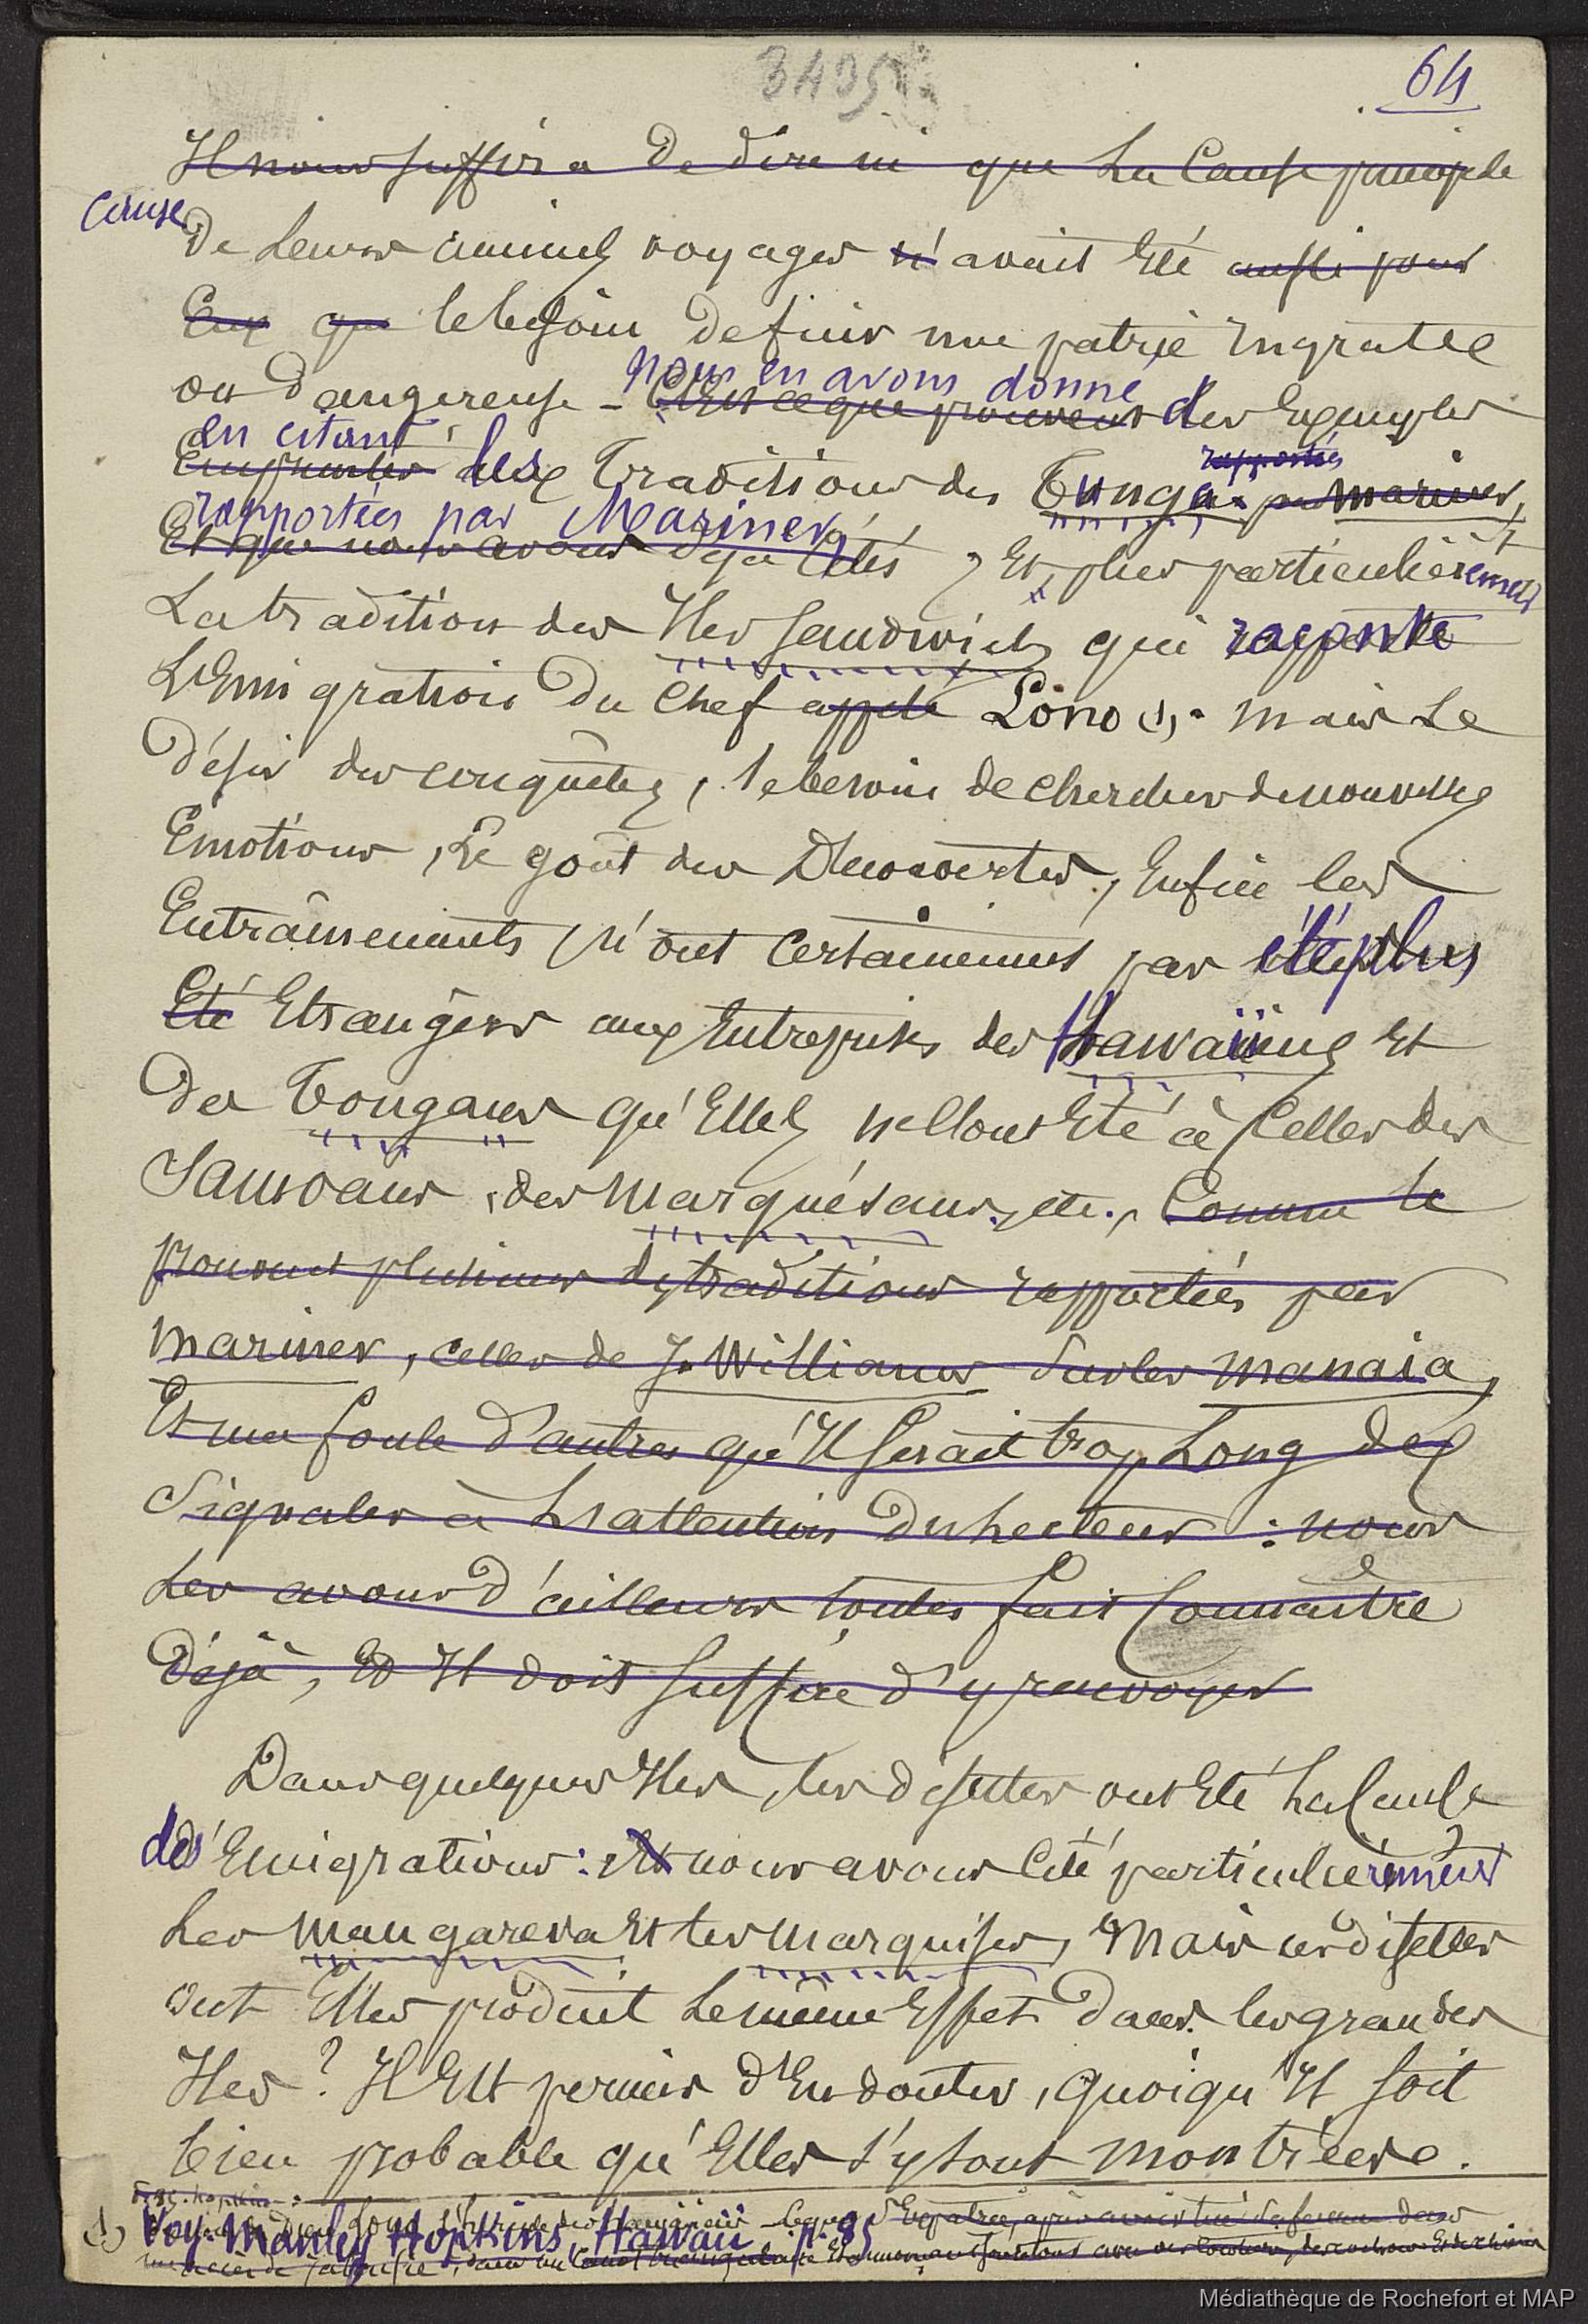 3495
64
Il nous suffira de dire ici que la Cause principale
Cause
De leurs anciens voyages n'avait Eté aussi pour
Eux que le besoin de fuir une patrie Ingratte
nous en avons donné
ou dangereuse - C'Est ce que prouvent des Exemples
en citant les rapportés
Empruntés aux Traditions des Tunga par mariner,
rapportées par Mariner,
Et que nous avons déjà Cités, Et, plus particulièrement
La tradition des Iles Sandwich, qui raconte
L'Emigration du chef appelé Lono (1). mais Le
Désir des conquêtes, le besoin de chercher de nouvelles
Emotions, Le goût des Découvertes, Enfin les
Entraînements, n'ont certainement pas été plus
Eté Etrangers aux Entreprises des Hawaiiens Et
Des Tongans qu'Elles ne l'ont Eté à Celles des
Samoans, des Marquésans, etc., Comme le
prouvent plusieurs des traditions rapportées par
Mariner, celles de J. Williams sur les Manaia,
Et une foule d'autres qu'Il serait trop Long de
Signaler à L'attention du Lecteur : nous
Les avons d'ailleurs toutes fait Connaître
Déjà, Et Il doit suffire d'y renvoyer
Dans quelques Iles, les disettes ont Eté La Cause
des Emigrations : Et nous avons Cité particulièrement
Les Mangareva Et les Marquises, Mais ces disettes
ont Elles produit Le même Effet Dans les grandes
Iles ? Il Est permis d'En douter, quoiqu'Il soit
bien probable qu'Elles s'y sont montrées.
(1) Voy. Manley Hopkins, Hawaii p. 85
Médiathèque de Rochefort et MAP